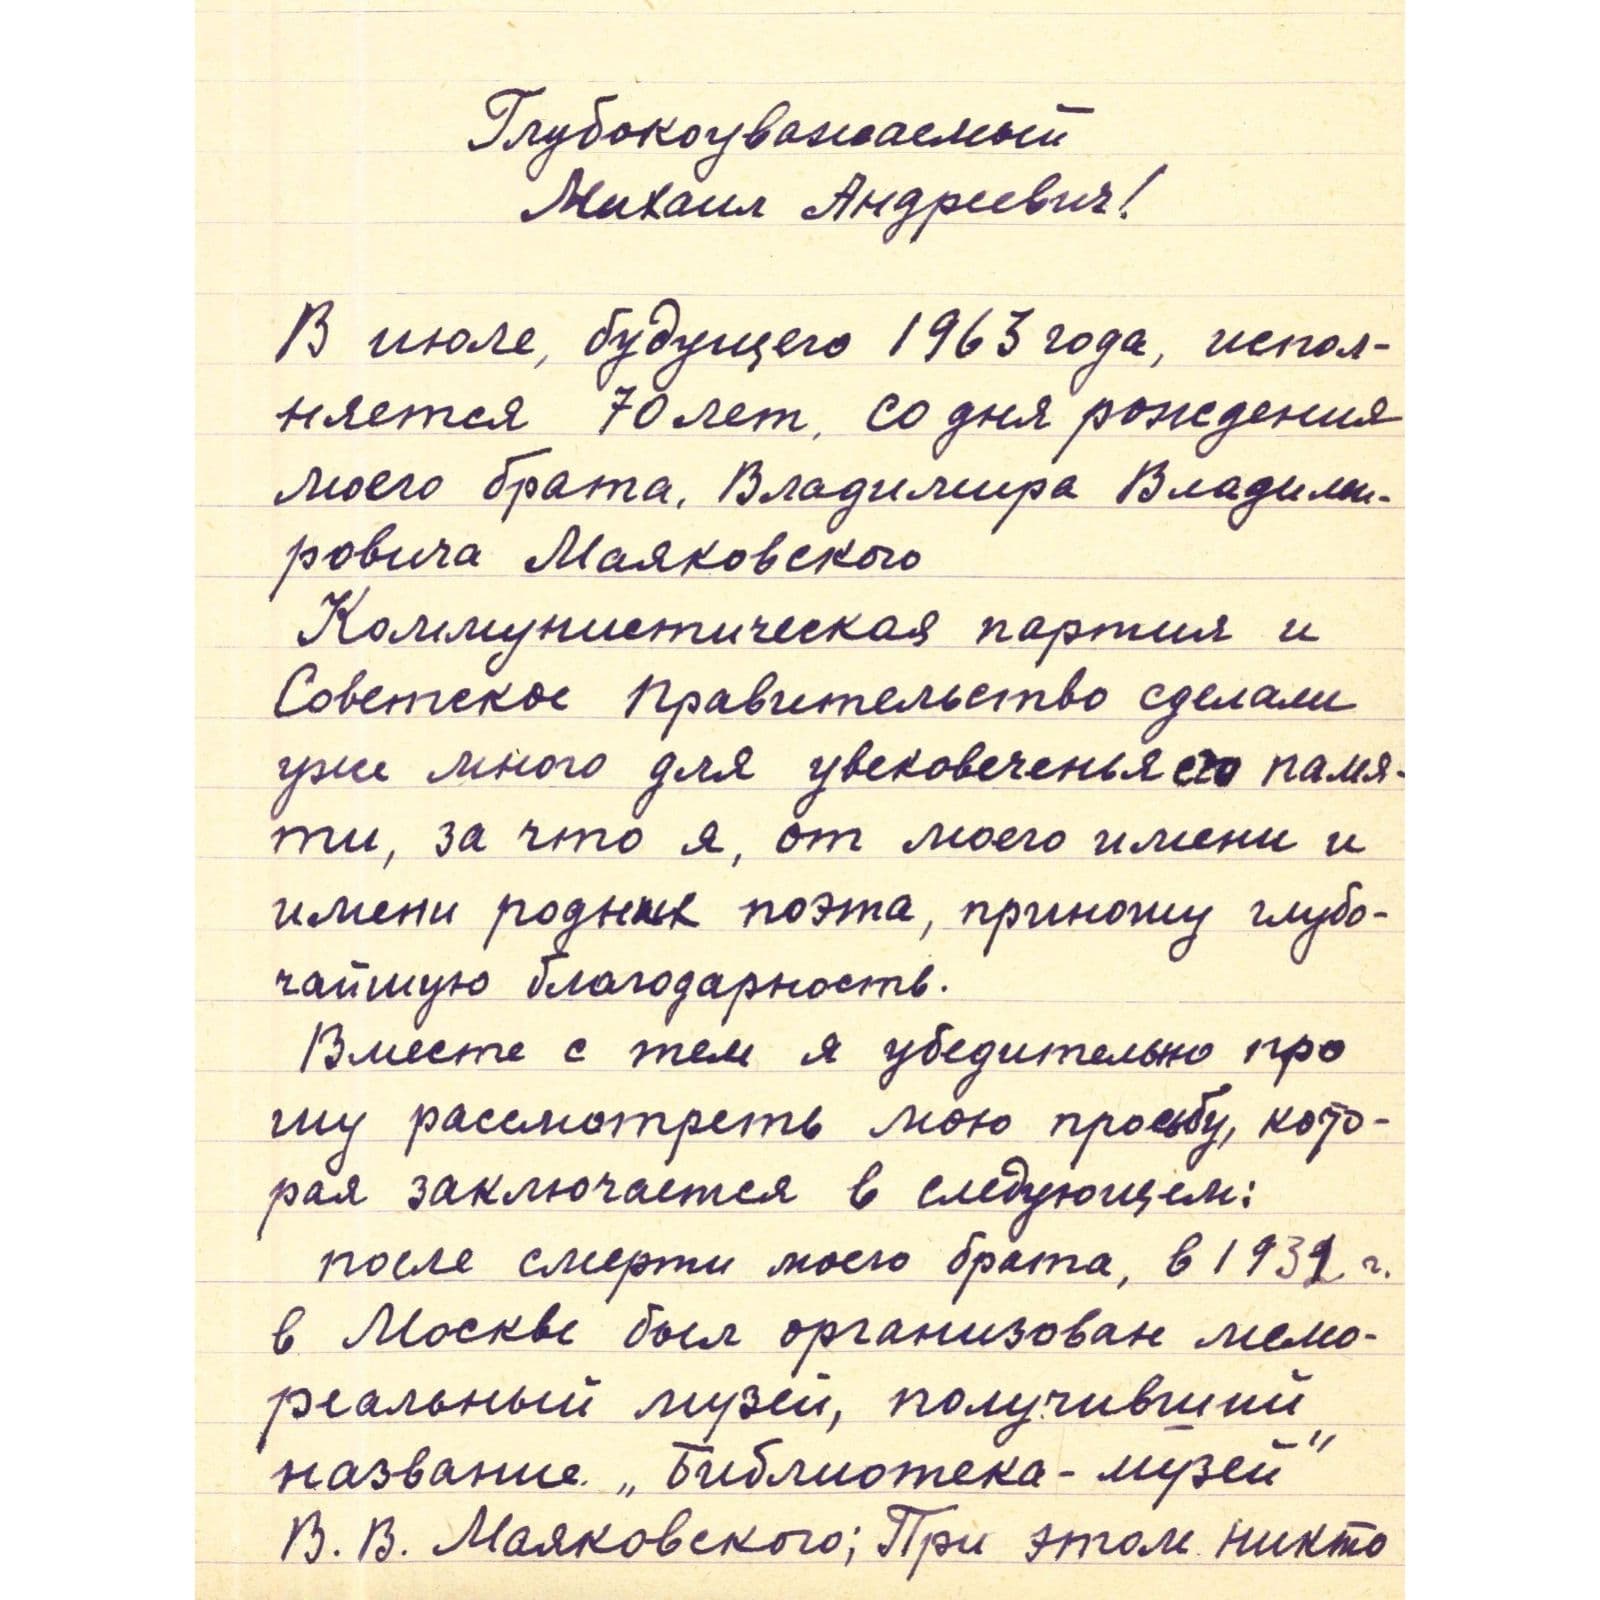 Глубокоуважаемый
Михаил Андреевич!
В июле, будущего 1963 года, испол-
няется 70 лет, со дня рождения
моего брата, Владимира Владими-
ровича Маяковского
Коммунистическая партия и
Советское Правительство сделали
уже много для увековеченья его памя-
ти, за что я, от моего имени и
имени родных поэта, приношу глубо-
чайшую благодарность.
Вместе с тем я убедительно про
шу рассмотреть мою просьбу, кото-
рая заключается в следующем:
после смерти моего брата, в г.
в Москве был организован мемо-
реальный музей, получивший
название „Библиотека-музей"
В. В. Маяковского; При этом никто